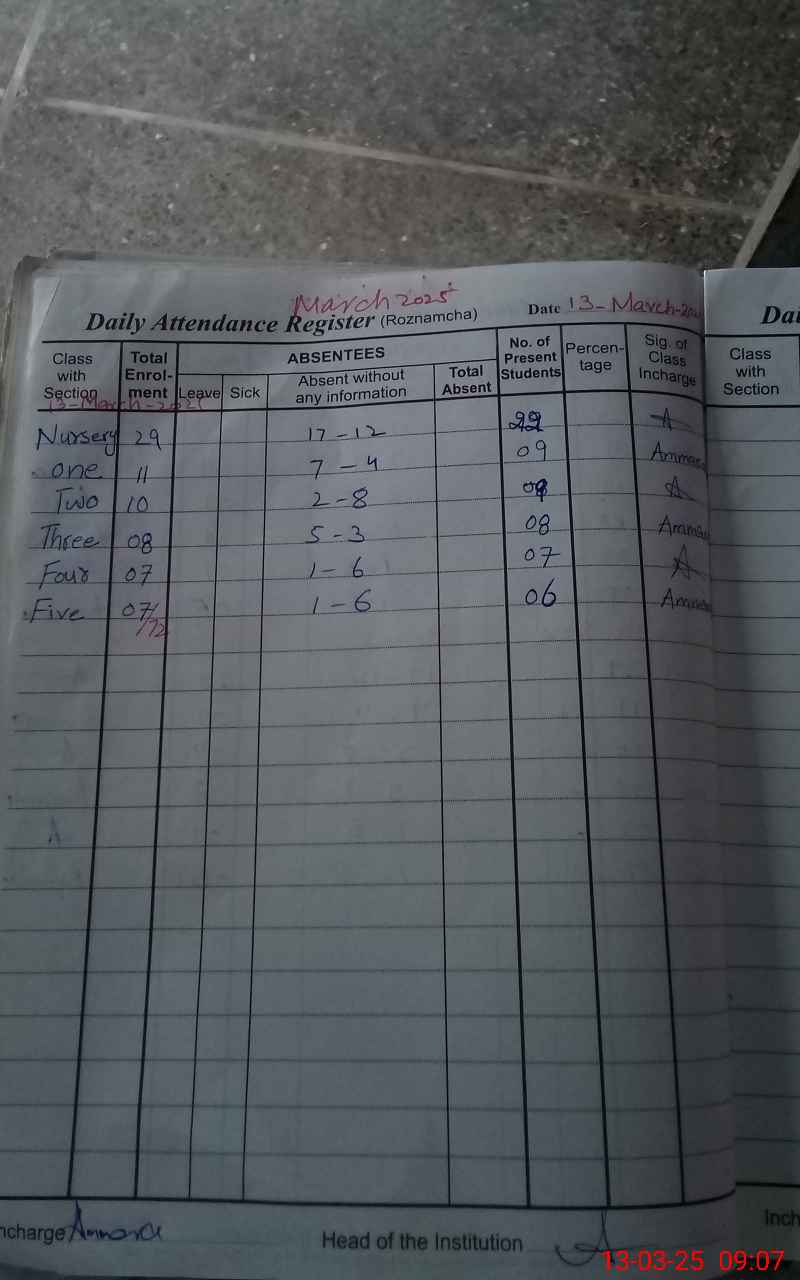 March 2025
Daily Attendance Register (Roznamcha) Date 13-March-202
Class with Section Total Enrol-ment ABSENTEES Leave Sick Absent without any information Total Absent No. of Present Students Percen-tage Sig. of Class Incharge
13-March-2025
Nursery 29 17-12 22 A
one 11 7-4 09 Ammara
Two 10 2-8 A
Three 08 5-3 08 Ammar
Four 07 1-6 07 A
Five 07 1-6 06 Ammar
/72
ncharge Ammara Head of the Institution A
Dai
Class with Section
Inch
13-03-25 09:07